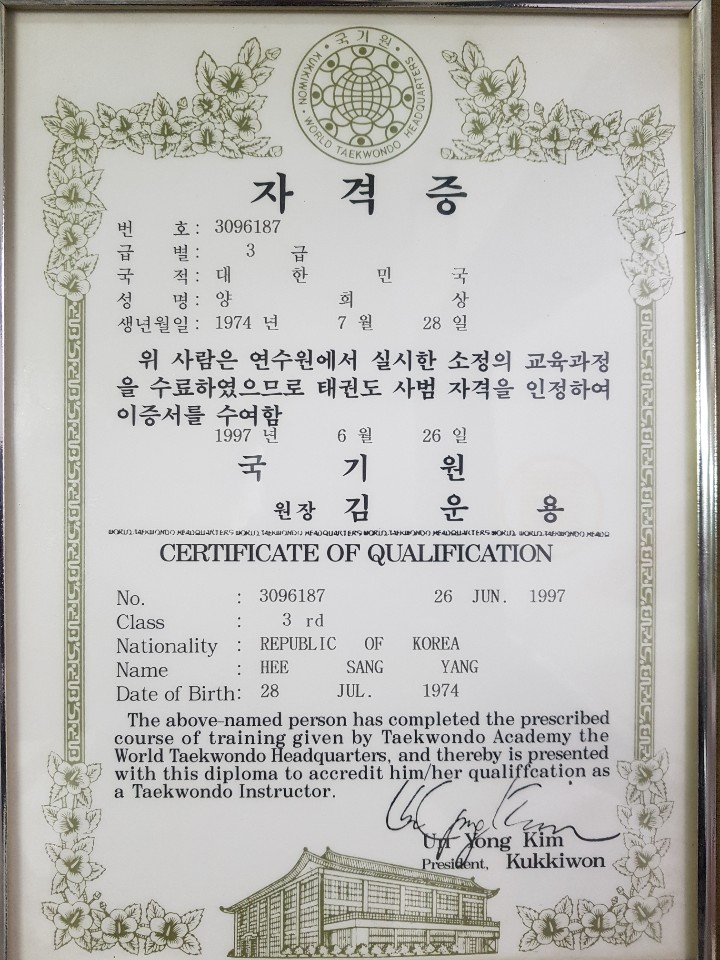 · 국기원 ·
KUKKIWON · WORLD TAEKWONDO HEADQUARTERS
자 격 증
번 호 : 3096187
급 별 : 3 급
국 적 : 대 한 민 국
성 명 : 양 희 상
생년월일 : 1974 년 7 월 28 일
위 사람은 연수원에서 실시한 소정의 교육과정
을 수료하였으므로 태권도 사범 자격을 인정하여
이증서를 수여함
1997 년 6 월 26 일
국 기 원
원장 김 운 용
WORLD TAEKWONDO HEADQUARTERS WORLD TAEKWONDO HEADQUARTERS WORLD TAEKWONDO HEADQUARTERS WORLD TAEKWONDO HEADQ
CERTIFICATE OF QUALIFICATION
No. : 3096187 26 JUN. 1997
Class : 3 rd
Nationality : REPUBLIC OF KOREA
Name : HEE SANG YANG
Date of Birth: 28 JUL. 1974
The above-named person has completed the prescribed
course of training given by Taekwondo Academy the
World Taekwondo Headquarters, and thereby is presented
with this diploma to accredit him/her qualiffcation as
a Taekwondo Instructor.
Un Yong Kim
President, Kukkiwon